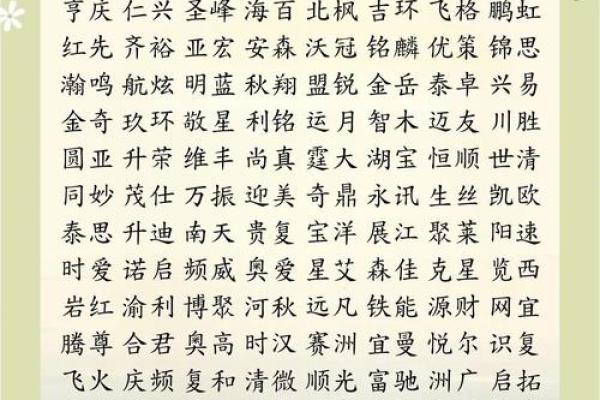 亨庆 仁兴 圣峰 海百 北枫 吉环 飞格 鹏虹
红先 齐裕 亚宏 安森 沃冠 铭麟 优策 锦思
瀚鸣 航炫 明蓝 秋翔 盟锐 金岳 泰卓 兴易
金奇 玖环 敬星 利铭 运月 智木 迈友 川胜
圆亚 升荣 维丰 尚真 霆大 湖宝 恒顺 世清
同妙 茂仕 万振 迎美 奇鼎 永讯 生丝 凯欧
泰思 升迪 南天 贵复 宝洋 展江 聚莱 阳速
时爱 诺启 频威 奥爱 星艾 森佳 克星 览西
岩红 渝利 博聚 河秋 远凡 铁能 源财 网宜
腾尊 合君 奥高 时汉 赛洲 宜曼 悦尔 识复
飞火 庆频 复和 清微 顺光 富驰 洲广 启拓